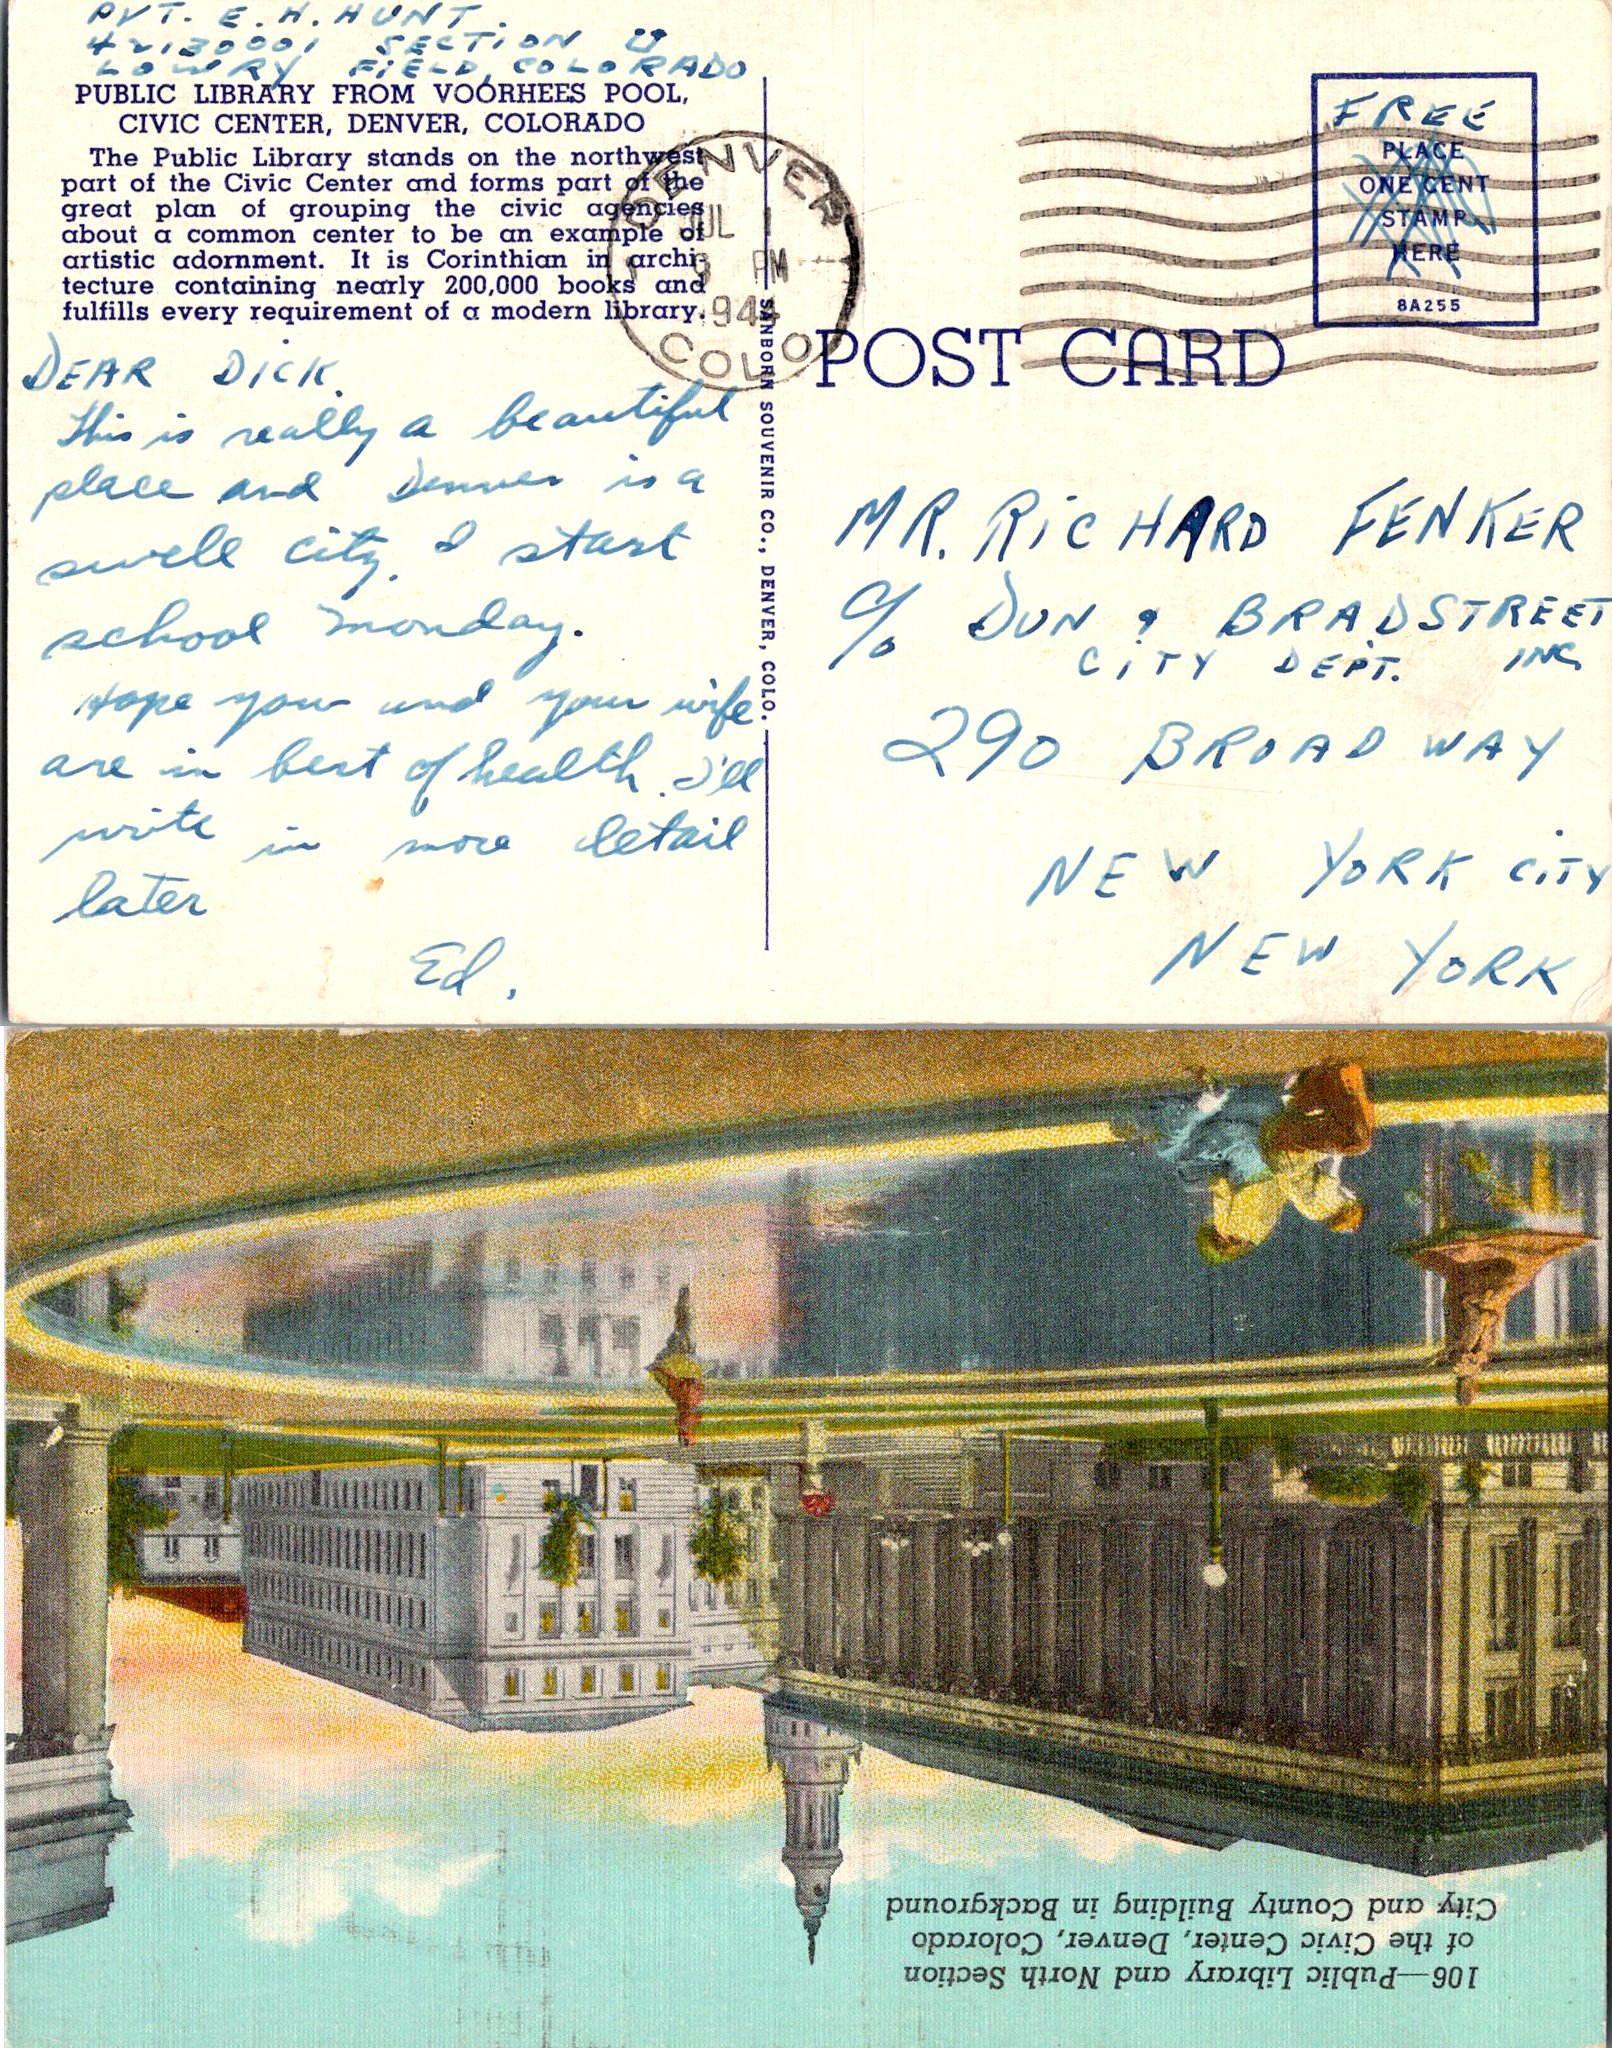 PVT. E. H. HUNT.
42130001 SECTION U
LOWRY FIELD, COLORADO
PUBLIC LIBRARY FROM VOORHEES POOL,
CIVIC CENTER, DENVER, COLORADO
The Public Library stands on the northwest
part of the Civic Center and forms part of the
great plan of grouping the civic agencies
about a common center to be an example of
artistic adornment. It is Corinthian in archi-
tecture containing nearly 200,000 books and
fulfills every requirement of a modern library.
DEAR DICK.
This is really a beautiful
place and Denver is a
swell city. I start
school Monday.
Hope you and your wife
are in best of health. I'll
write in more detail
later
Ed.
SANBORN SOUVENIR CO., DENVER, COLO.
DENVER
JUL 1
PM
1944
COLO
POST CARD
FREE
PLACE
ONE CENT
STAMP
HERE
8A255
MR. RICHARD FENKER
c/o DUN & BRADSTREET
CITY DEPT. INC.
290 BROADWAY
NEW YORK CITY
NEW YORK
106—Public Library and North Section
of the Civic Center, Denver, Colorado
City and County Building in Background